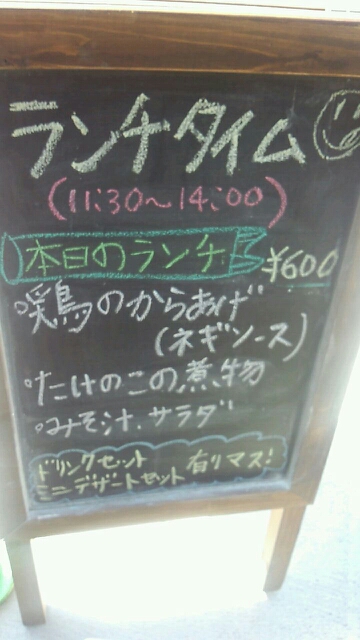 ランチタイム
(11:30～14:00)
本日のランチ ¥600
・鶏のからあげ
(ネギソース)
・たけのこの煮物
・みそ汁.サラダ
ドリンクセット 有リマス!
ミニデザートセット